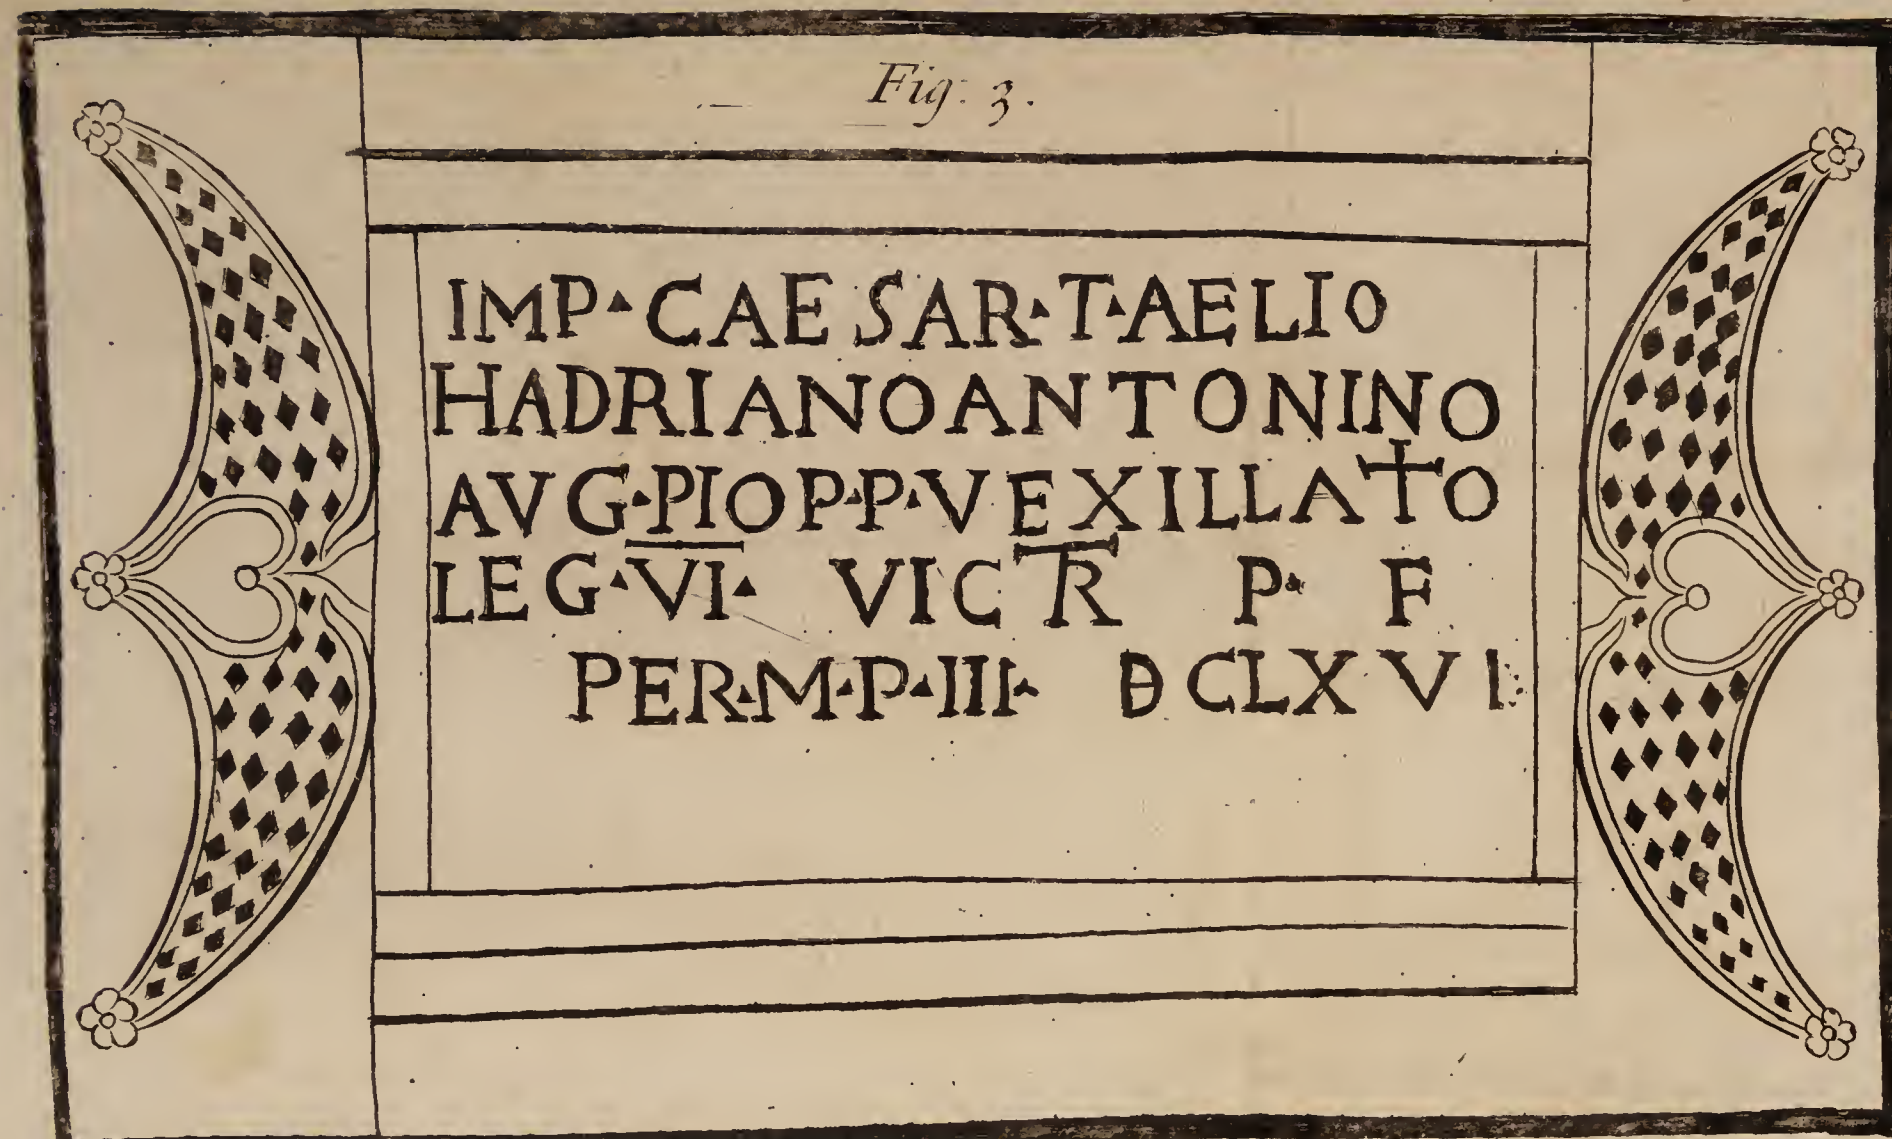 Fig: 3.
IMP▴CAESAR▴T▴AELIO
HADRIANOANTONINO
AVG▴PIOP▴P▴VEXILLATO
LEG▴V̅I̅▴ VICTR P▴ F
PER▴M▴P▴III▴ ĐCLXVI